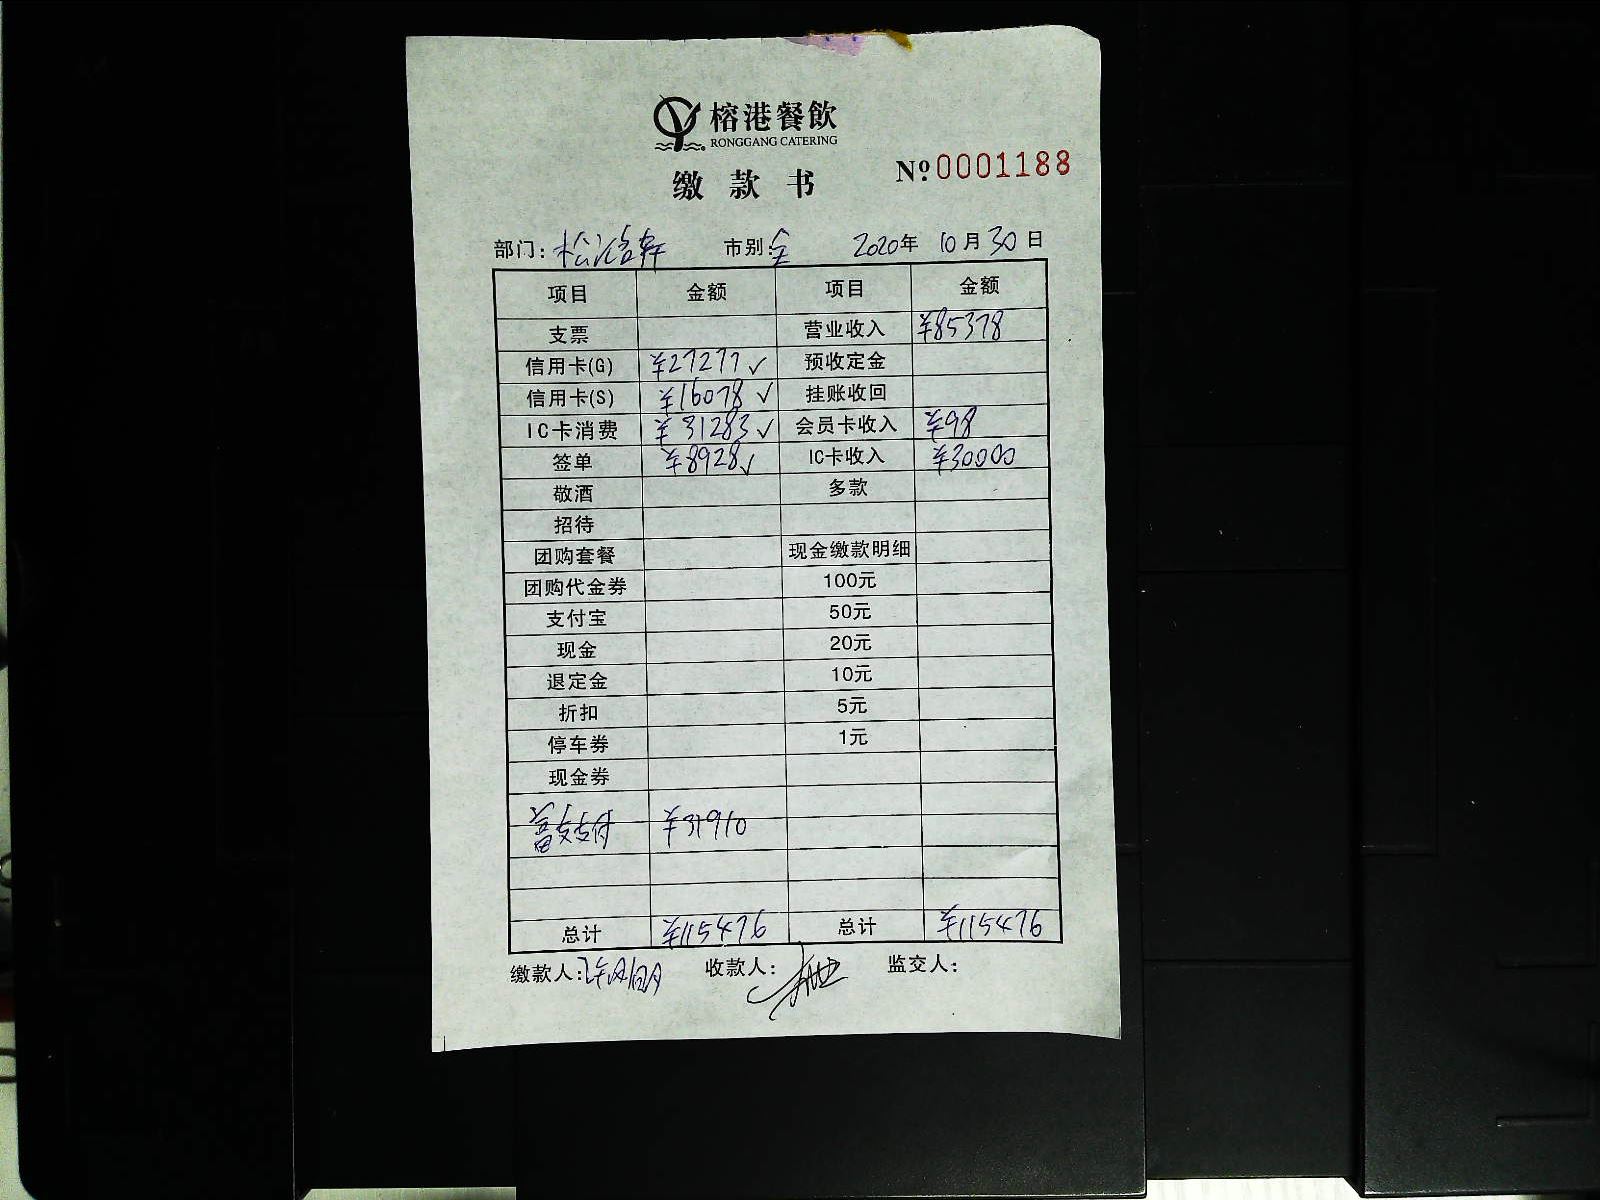 榕港餐飲
RONGGANG CATERING
缴款书
№0001188
部门: 市别: 全 2020年 10月30日
项目 金额 项目 金额
支票 营业收入 ¥85378
信用卡(G) ¥27277✓ 预收定金
信用卡(S) ¥16078✓ 挂账收回
IC卡消费 ¥31283✓ 会员卡收入 ¥98
签单 ¥8928✓ IC卡收入 ¥30000
敬酒 多款
招待
团购套餐 现金缴款明细
团购代金券 100元
支付宝 50元
现金 20元
退定金 10元
折扣 5元
停车券 1元
现金券
¥31910
总计 ¥115476 总计 ¥115476
缴款人: 收款人: 监交人: